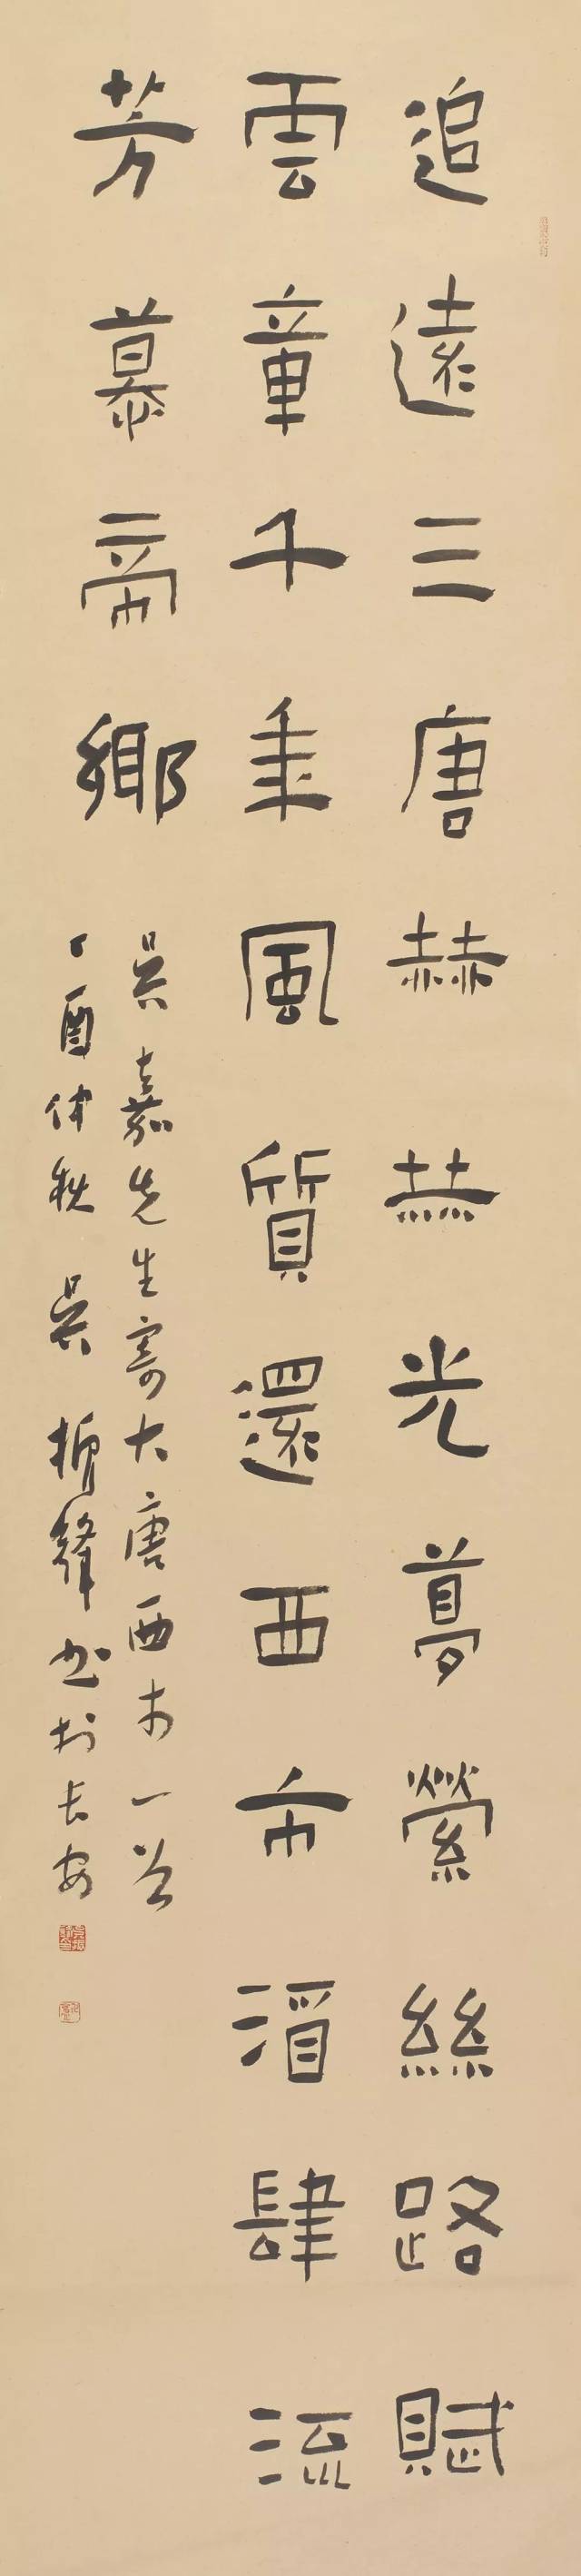 追遠三唐赫赫光夢縈絲路賦
雲章千年風質還西市酒肆流
芳慕帝鄉
吴嘉先生寄大唐西市一首
丁酉仲秋 吴振鋒书於长安